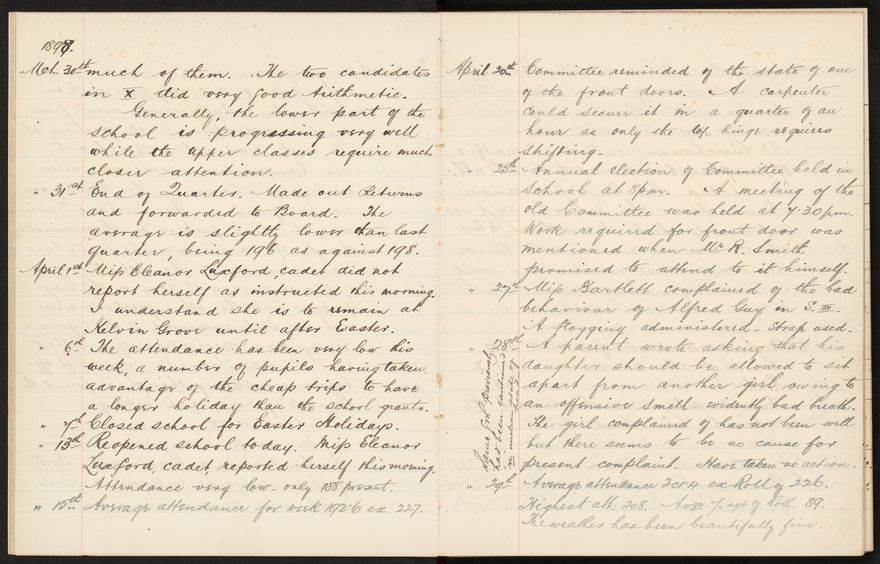 1898.
Mch. 30th much of them. The two candidates
in X did very good Arithmetic.
Generally, the lower part of the
school is progressing very well
while the upper classes require much
closer attention.
" 31st End of Quarter. Made out Returns
and forwarded to Board. The
average is slightly lower than last
quarter, being 196 as against 198.
April 1st Miss Eleanor Luxford, cadet did not
report herself as instructed this morning.
I understand she is to remain at
Kelvin Grove until after Easter.
" 6th The attendance has been very low this
week, a number of pupils having taken
advantage of the cheap trips to have
a longer holiday than the school grants.
" 7th Closed school for Easter Holidays.
" 13th Reopened school today. Miss Eleanor
Luxford, cadet, reported herself this morning.
Attendance very low - only 158 present.
" 15th Average attendance for week 192.6 ex 227.
April 20th Committee reminded of the state of one
of the front doors. A carpenter
could secure it in a quarter of an
hour as only the top hinge requires
shifting.
" 25th Annual election of Committee held in
School at 8 p.m. A meeting of the
old Committee was held at 7.30 p.m.
Work required for front door was
mentioned when Mr R. Smith
promised to attend to it himself.
" 27th Miss Bartlett complained of the bad
behaviour of Alfred Guy in S. III.
A flogging administered - Strap used.
" 28th A parent wrote asking that his
daughter should be allowed to sit
apart from another girl, owing to
an offensive smell - evidently bad breath.
The girl complained of has not been well
but there seems to be no cause for
present complaint. Have taken no action.
" 29th Average attendance 201.4 ex Roll of 226.
Highest att. 208. Avge % age of Roll. 89.
The weather has been beautifully fine.
has been cautioned